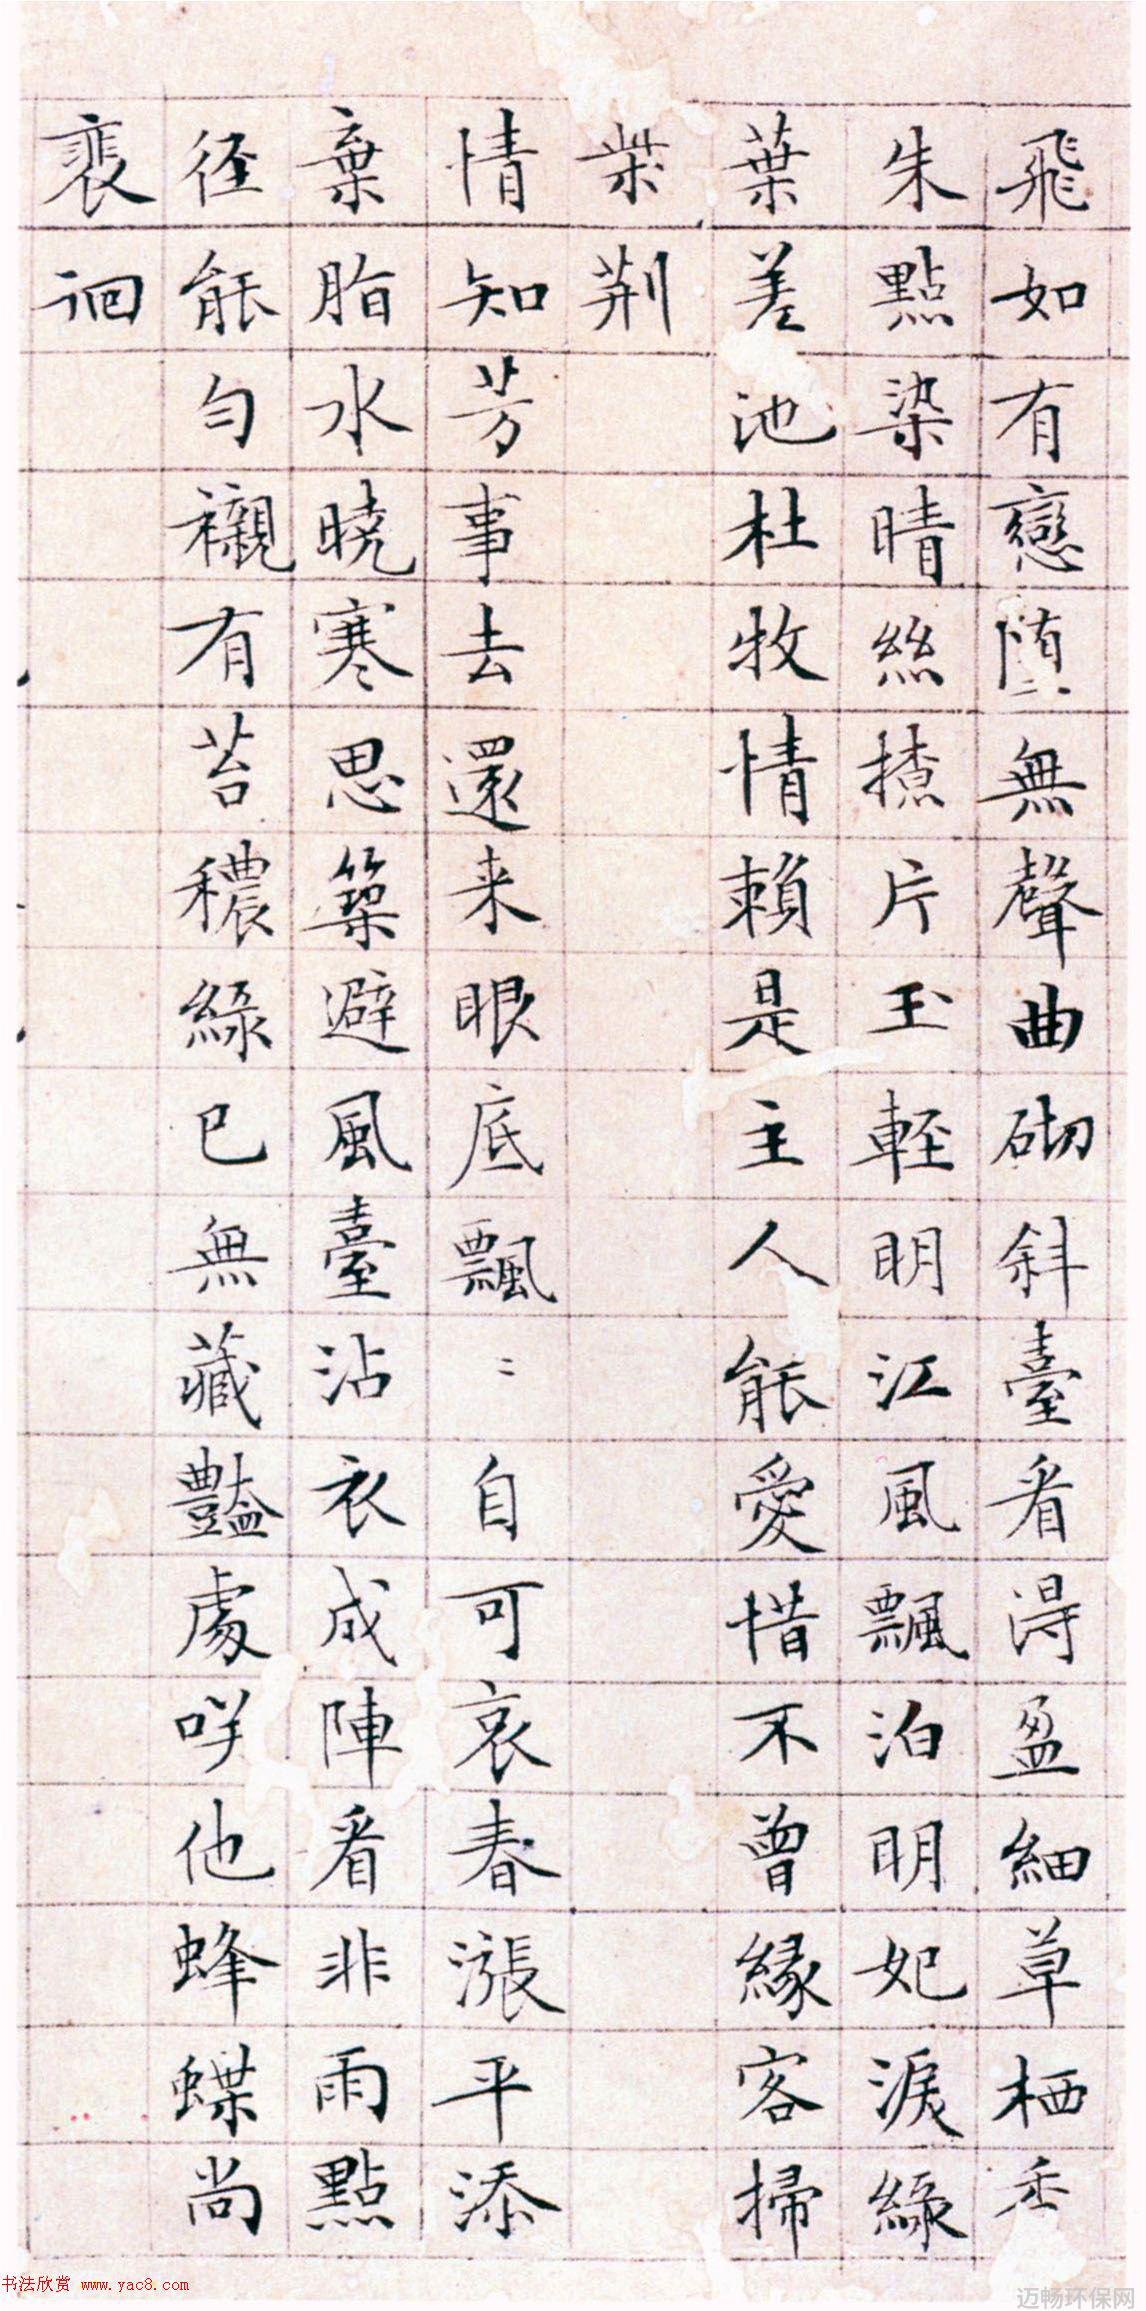 飛如有戀堕無聲曲砌斜臺看淂盈細草栖香
朱點染晴絲揸片玉輊明江風飄泊明妃淚綠
葉差池杜牧情賴是主人能愛惜不曾緣客掃
柴荆
情知芳事去還来眼底飄〻自可哀春漲平添
棄脂水曉寒思築避風臺沾衣成陣看非雨點
径能勻襯有苔穠綠已無藏豔處咲他蜂蝶尚
裵徊
书法欣赏 www.yac8.com
迈畅环保网